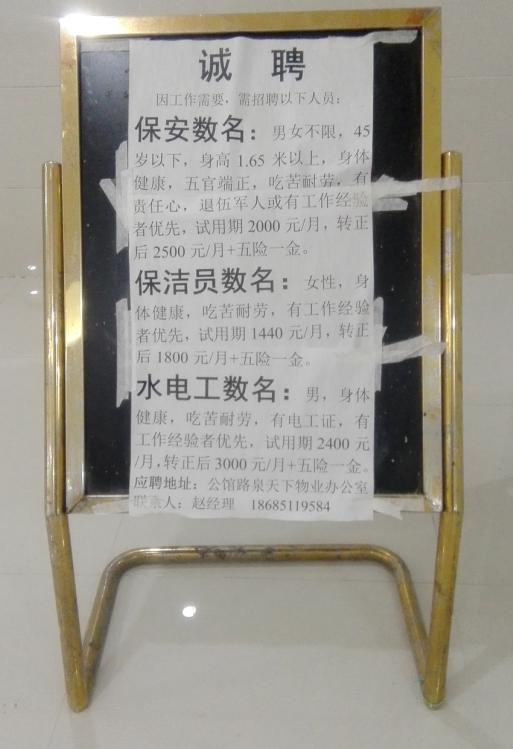 诚 聘
因工作需要，需招聘以下人员：
保安数名：男女不限，45
岁以下，身高 1.65 米以上，身体
健康，五官端正，吃苦耐劳，有
责任心，退伍军人或有工作经验
者优先，试用期 2000 元/月，转正
后 2500 元/月+五险一金。
保洁员数名：女性，身
体健康，吃苦耐劳，有工作经验
者优先，试用期 1440 元/月，转正
后 1800 元/月+五险一金。
水电工数名：男，身体
健康，吃苦耐劳，有电工证，有
工作经验者优先，试用期 2400 元
/月,转正后 3000 元/月+五险一金。
应聘地址：公馆路泉天下物业办公室
联系人：赵经理 18685119584